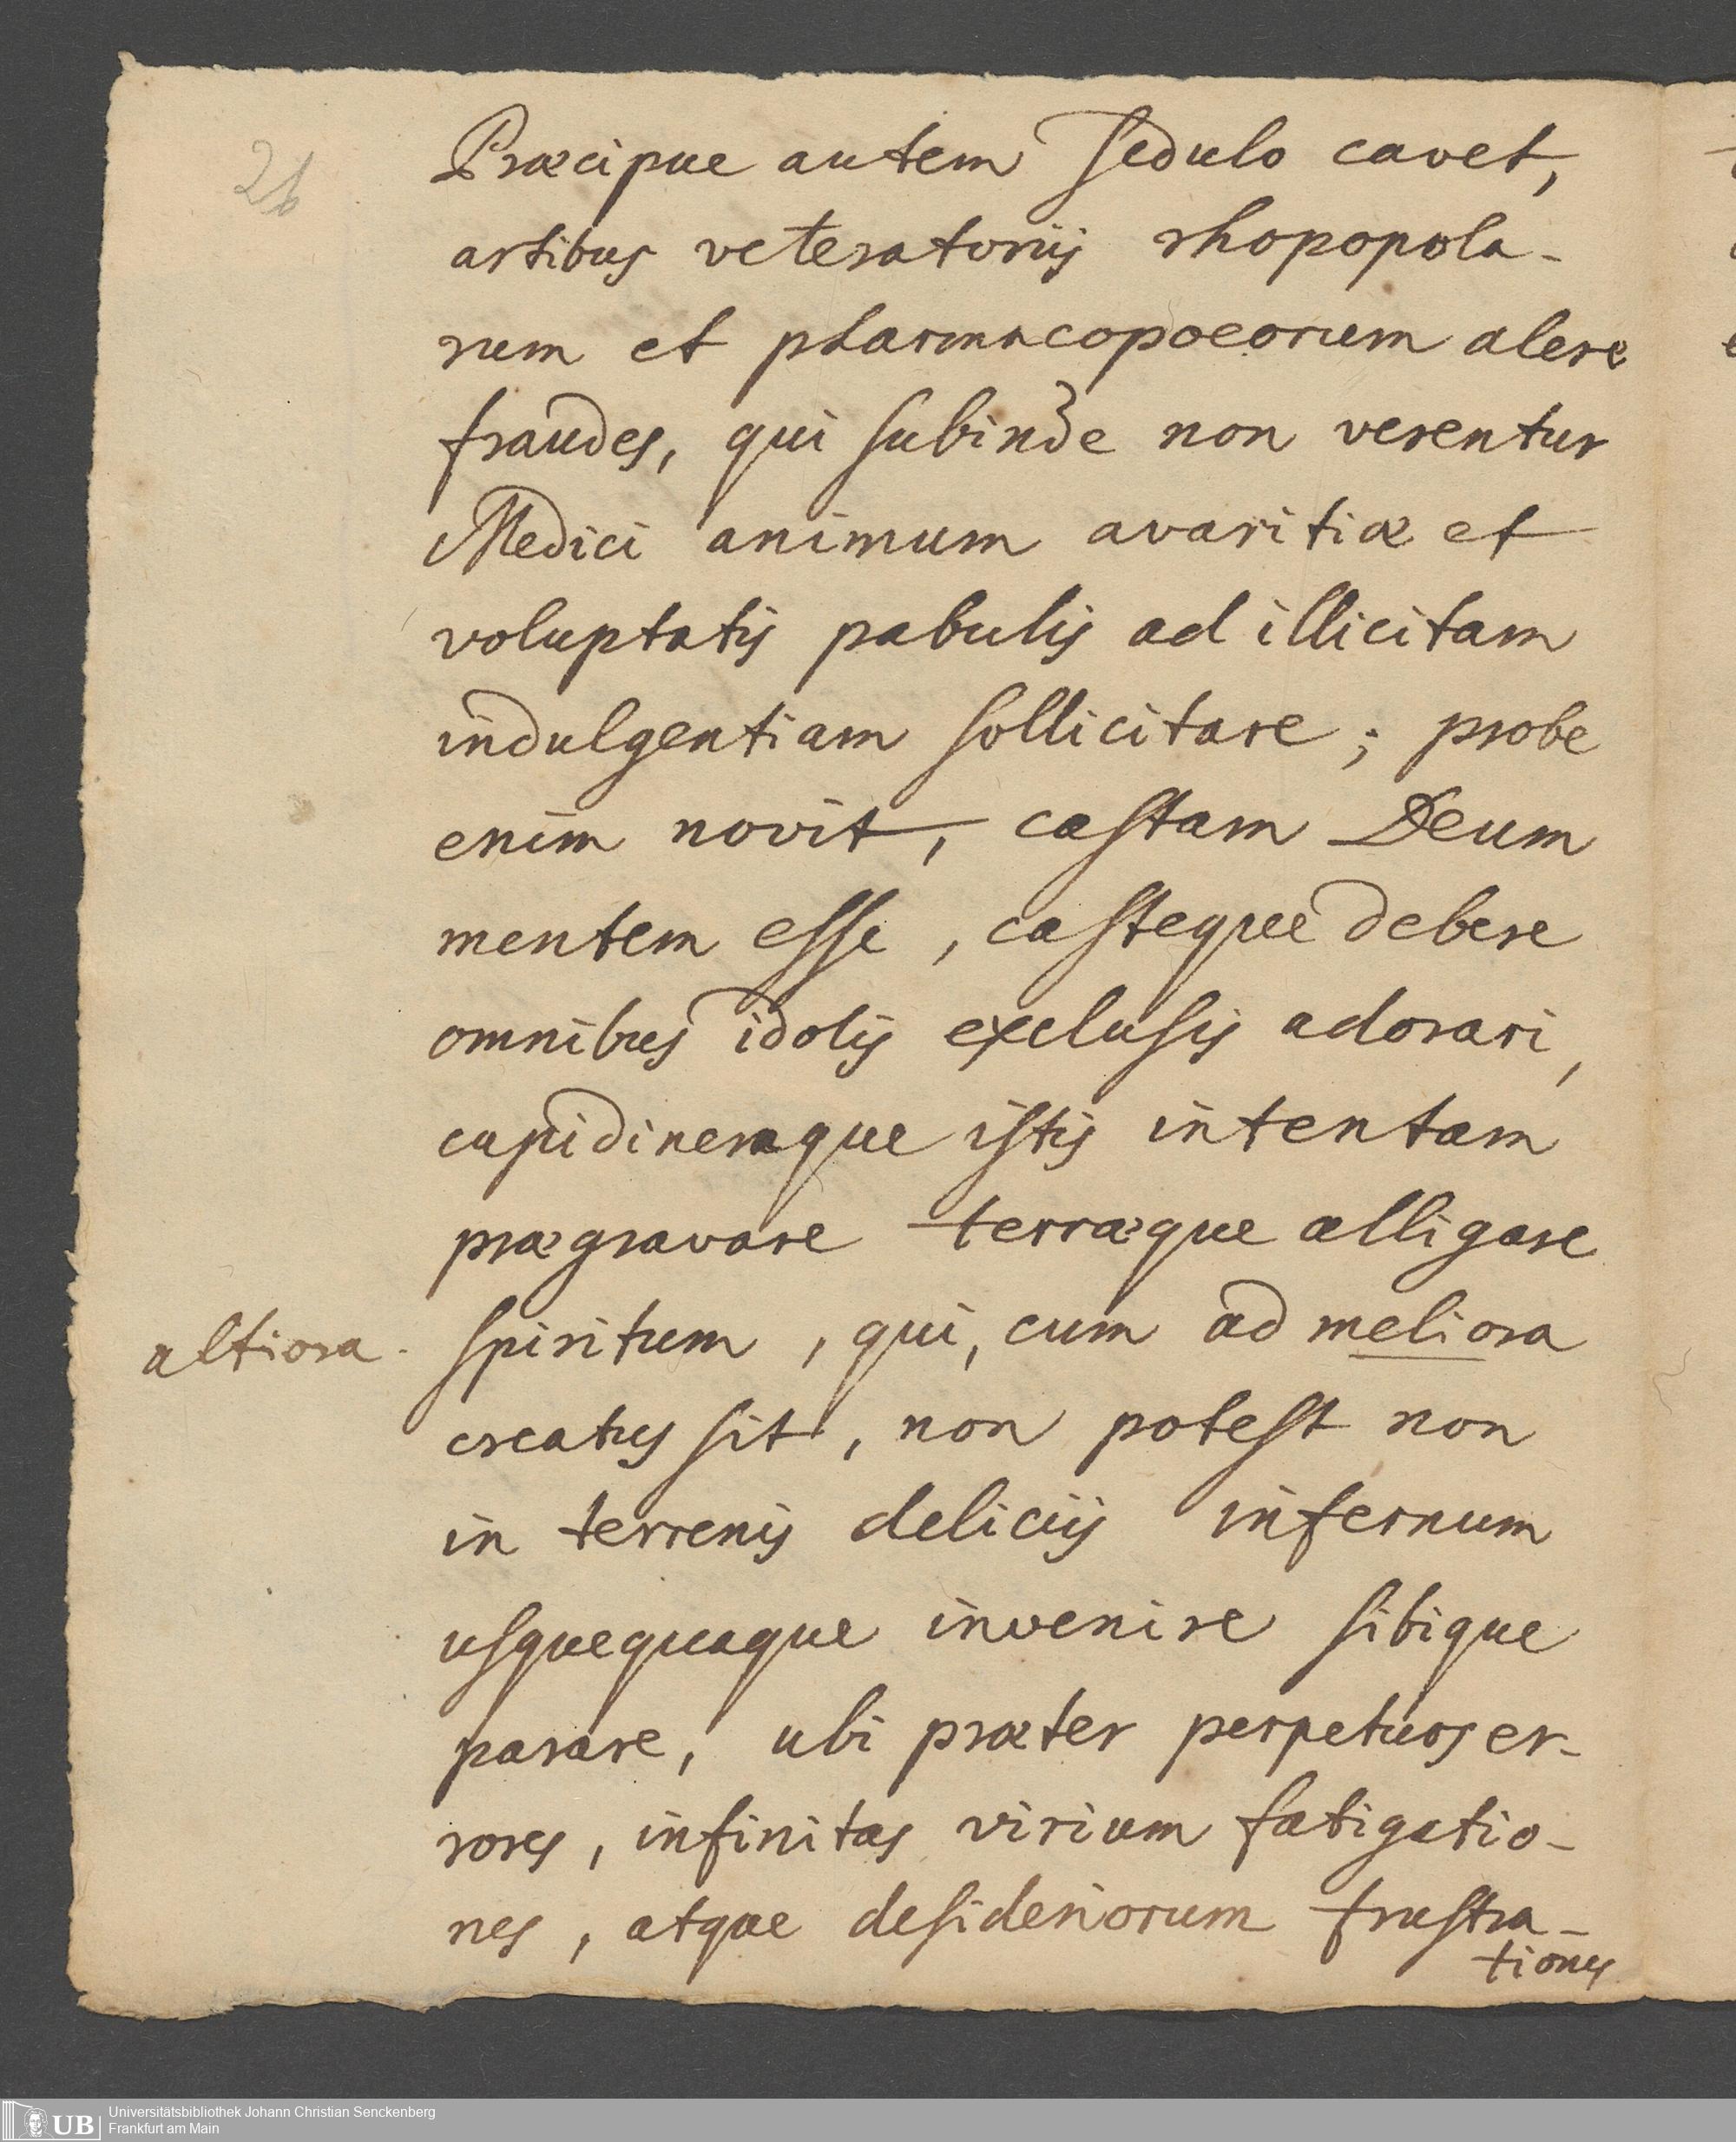 2b
Præcipue autem sedulo cavet,
artibus veteratoriis rhopopola-
rum et pharmacopoeorum alere
fraudes, qui subinde non verentur
Medici animum avaritiæ et
voluptatis pabulis ad illicitam
indulgentiam sollicitare; probe
enim novit, castam Deum
mentem esse, casteque debere
omnibus idolis exclusis adorari,
cupidinemque istis intentam
prægravare terræque alligare
altiora. spiritum, qui, cum ad meliora
creatus sit, non potest non
in terrenis deliciis infernum
usquequaque invenire sibique
parare, ubi præter perpetuos er-
rores, infinitas virium fatigatio-
nes, atque desideriorum frustra-
tiones
UB Universitätsbibliothek Johann Christian Senckenberg
Frankfurt am Main